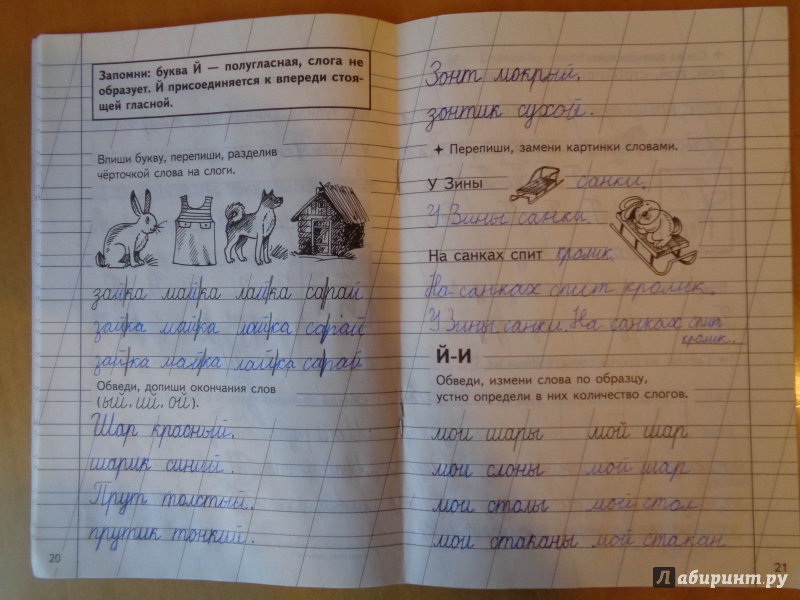 Запомни: буква Й — полугласная, слога не
образует. Й присоединяется к впереди стоя-
щей гласной.
Впиши букву, перепиши, разделив
чёрточкой слова на слоги.
зай|ка май|ка лай|ка са|рай
зай|ка май|ка лай|ка са|рай
зай|ка май|ка лай|ка са|рай
Обведи, допиши окончания слов
(ый, ий, ой).
Шар красный.
шарик синий.
Прут толстый.
прутик тонкий.
20
Зонт мокрый.
зонтик сухой.
Перепиши, замени картинки словами.
У Зины санки.
У Зины санки.
На санках спит кролик.
На санках спит кролик.
У Зины санки. На санках спит
кролик.
Й-И
Обведи, измени слова по образцу,
устно определи в них количество слогов.
мои шары мой шар
мои слоны мой шар
мои столы мой стол
мои стаканы мой стакан
21
Лабиринт.ру